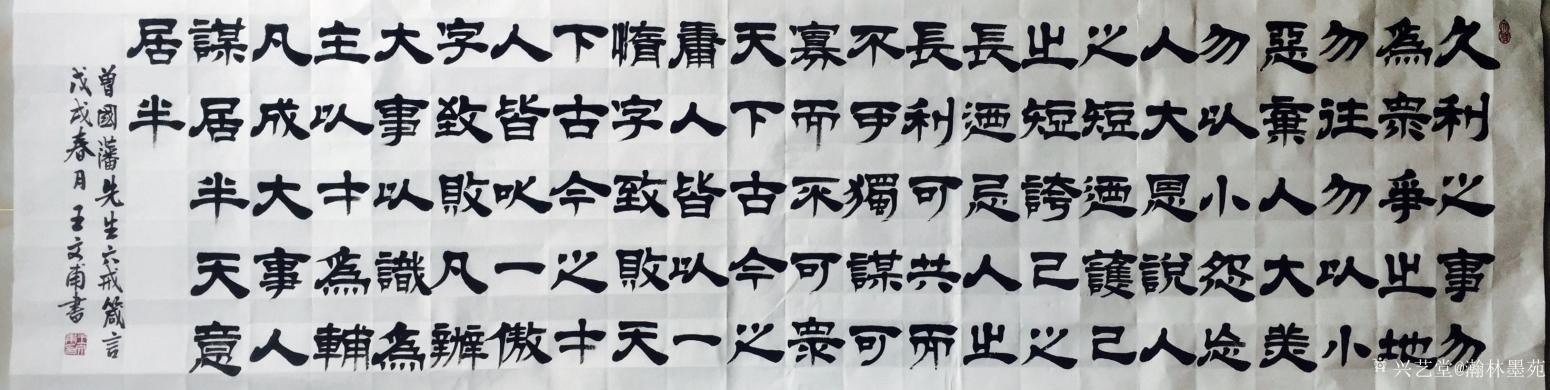 久利之事勿
為衆爭之地
勿往勿以小
惡棄人大美
勿以小怨忘
人大恩說人
之短迺護己
之短誇己之
長迺忌人之
長利可共而
不可獨謀可
寡而不可衆
天下古今之
庸人皆以一
惰字致敗天
下古今之才
人皆以一傲
字致敗凡辦
大事以識為
主以才為輔
凡成大事人
謀居半天意
居半
曾國藩先生六戒箴言
戊戌春月王文甫書
兴艺堂@瀚林墨苑